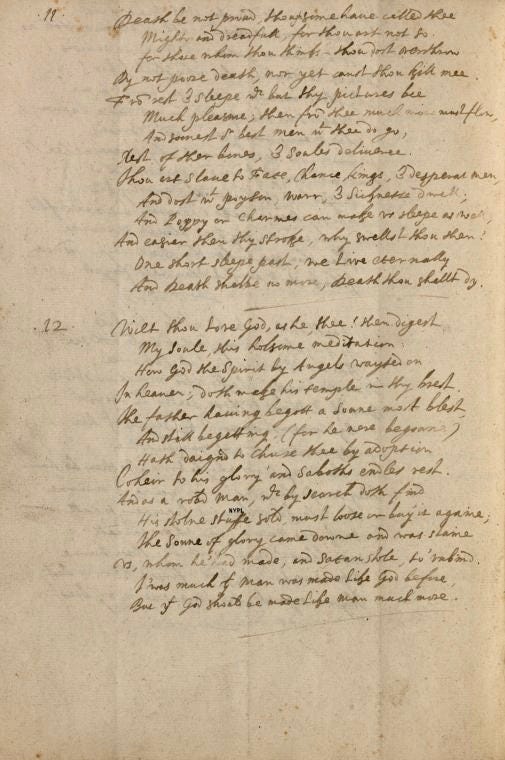 11
Death be not proud, though some have called thee
Mighty and dreadfull, for thou art not so.
for those whom thou thinkst thou dost overthrow
Dy not poore death, nor yet canst thou kill mee.
From rest & sleepe wch but thy pictures bee
Much pleasure, then fro thee much more must flow,
And soonest or best men wt thee do go,
Rest of their bones, & Soules deliverie.
Thou art slave to Fate, chance, kings, & desperat men,
And dost wt poyson, warr, & Sicknesse dwell,
And Poppy or Charmes can make vs sleepe as well,
And easier then thy stroke, why swellst thou then?
One short sleepe past, we Live eternally
And Death shalbe no more, Death thou shalt dy.
12
Wilt thou Love God, as he thee! then digest
My Soule, this holsome meditation:
How God the Spirit by Angels wayted on
In heaven; doth make his temple in thy brest.
the father having begott a Sonne most blest,
And still begetting, (for he nere begonne)
Hath daign'd to Chuse thee by adoption
Coheir to his glory' and Saboths endles rest.
And as a robd Man, wch by search doth find
NYPL
His stolne stuffe sold, must loose or buy it againe;
the Sonne of glory came downe and was slaine
vs, whom he'had made, and Satan stole, to vnbind.
T'was much yt Man was made Like God before,
But yt God should be made Like Man much more.